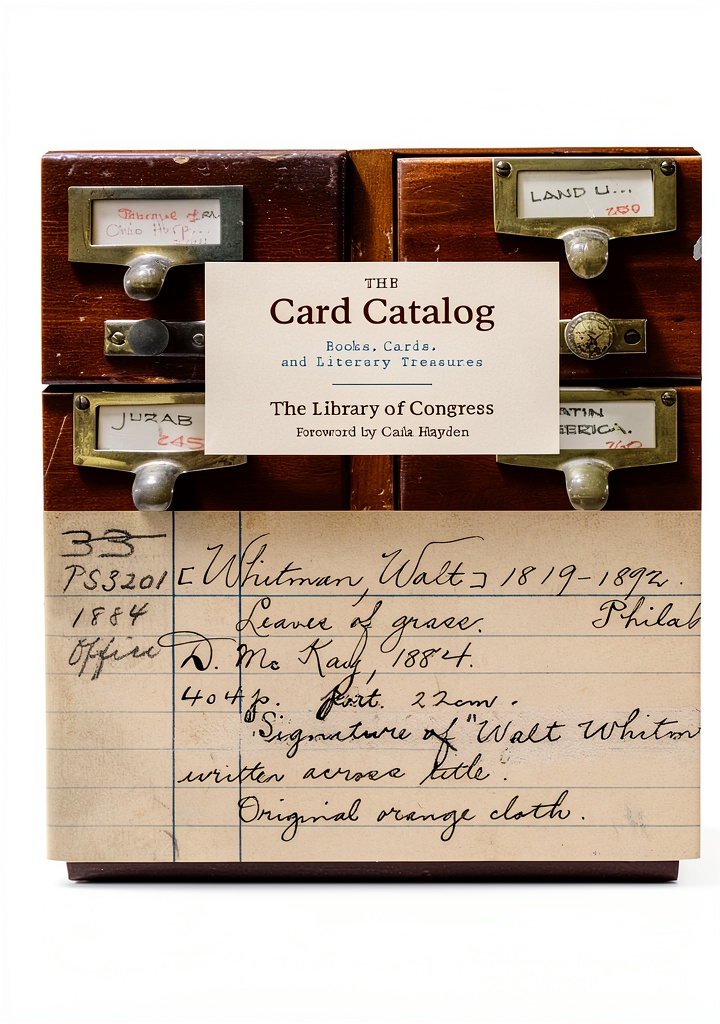 LAND U...
THE
Card Catalog
Books, Cards,
and Literary Treasures
The Library of Congress
Foreword by Carla Hayden
JUZAB
245
ATIN
ERICA.
33
PS3201
1884
Office
[Whitman, Walt] 1819-1892.
Leaves of grass. Philab
D. Mc Kay, 1884.
404 p. port. 22cm.
"Signature of "Walt Whitm
written across title.
Original orange cloth.